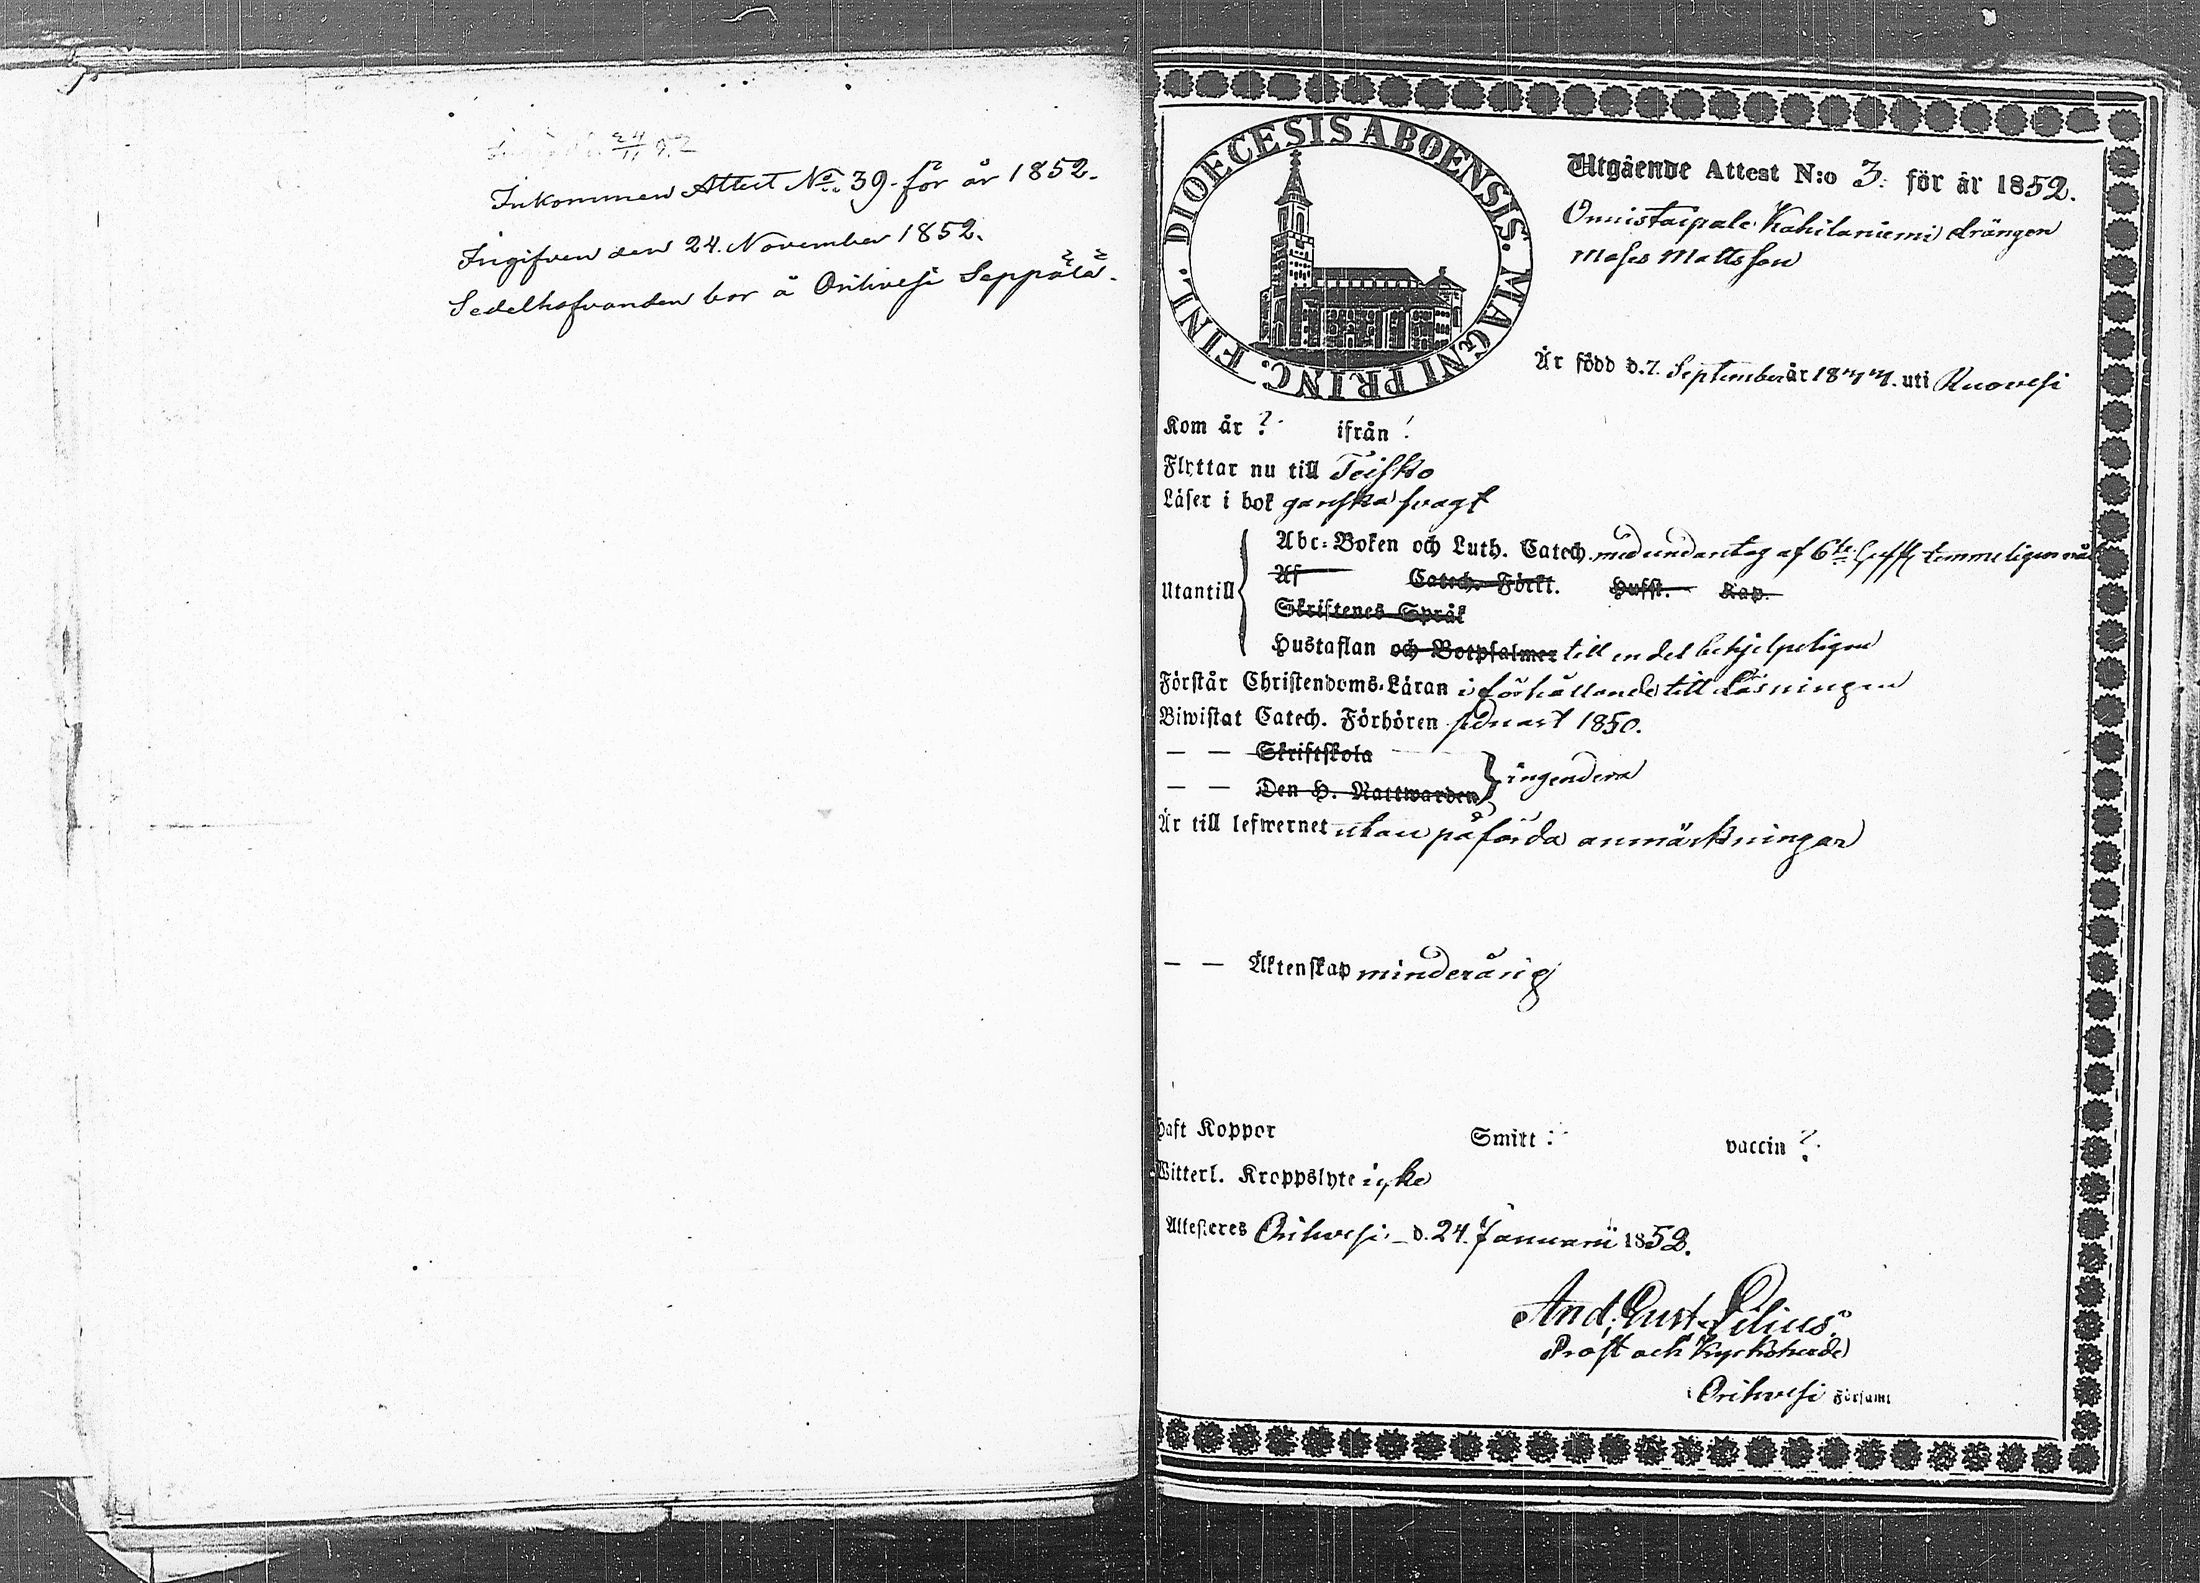 24/11 52
Inkommen Attest No 39 för år 1852.
Ingifven den 24. November 1852.
Sedelhafvanden bor å Orihvesi Seppälä.
DIOECESIS ABOENSIS. MAGNI PRINC. FINL.
Utgående Attest N:o 3. för år 1852.
Onnistaipale Kahilaniemi drängen
Moses Mattsson
Är född d. 7. September år 18 uti Ruovesi
Kom år ? ifrån !
Flyttar nu till Teisko
Läser i bok ganska svagt
Utantill
Abc-Boken och Luth. Catech. med undantag af 6te temmeligen
Af Catech. Förkl. Hufst. Kap.
Skriftenes Språk
Hustaflan och Botpsalmer till en del behjelpeligen
Förstår Christendoms-Läran i förhållande till läsningen
Biwistat Catech. Förhören senast 1850.
— — Skriftskola
— — Den H. Nattwarden } ingendera
Är till lefwernet utan påförda anmärkningar
— — Äktenskap minderårig
Haft Koppor Smitt: vaccin ?
Witterl. Kroppslyte icke
Attesteres Orihvesi d. 24. Januarii 1852.
And. Gust. Pilius.
Prost och Kyrkoherde
i Orihvesi Församl